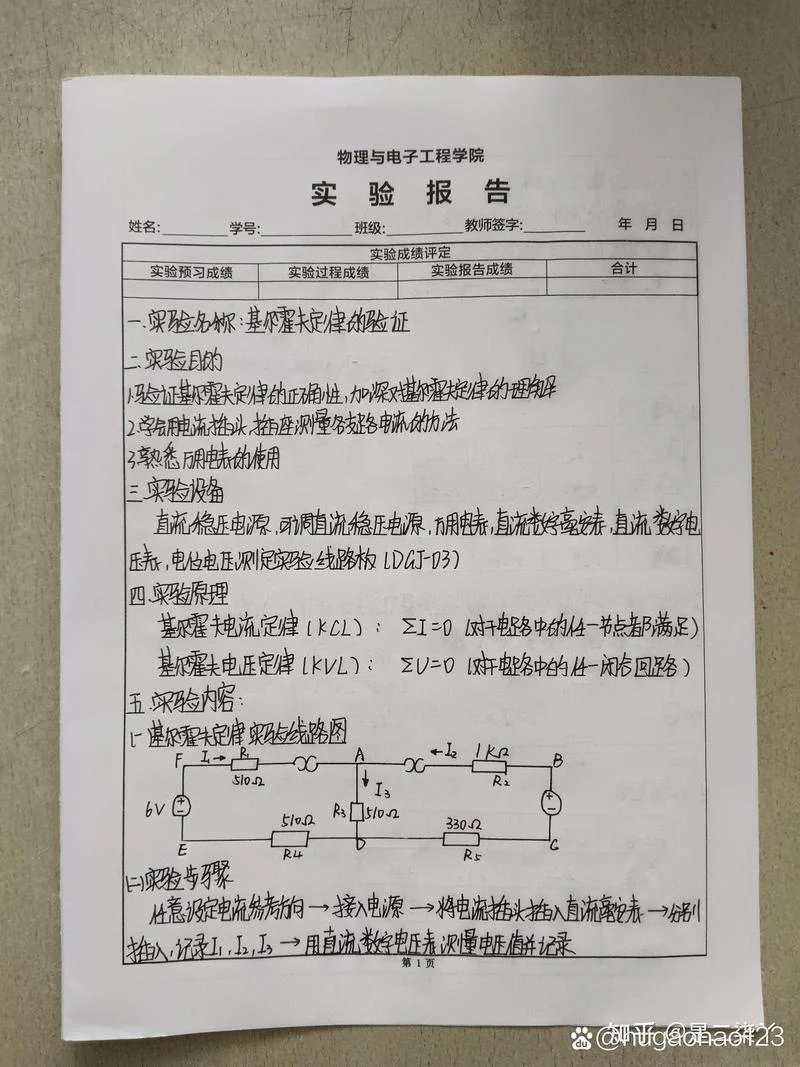 物理与电子工程学院
实 验 报 告
姓名:________ 学号:________ 班级:________ 教师签字:________ 年 月 日
实验成绩评定
实验预习成绩 实验过程成绩 实验报告成绩 合计
一.实验名称:基尔霍夫定律的验证
二.实验目的
1.验证基尔霍夫定律的正确性,加深对基尔霍夫定律的理解
2.学会用电流插头,插座测量各支路电流的方法
3.熟悉万用电表的使用
三.实验设备
直流稳压电源,可调直流稳压电源,万用电表,直流数字毫安表,直流数字电
压表,电位电压测定实验线路板(DGJ-03)
四.实验原理
基尔霍夫电流定律(KCL): ΣI=0 (对于电路中的任一节点都满足)
基尔霍夫电压定律(KVL): ΣU=0 (对于电路中的任一闭合回路)
五.实验内容:
(一)基尔霍夫定律实验线路图
F I₁→ R₁ A ←I₂ 1KΩ B
510Ω I₃ R₂
6V R₃ 510Ω
E 510Ω D 330Ω C
R4 R5
(二)实验步骤
任意设定电流参考方向→接入电源→将电流插头插入直流毫安表→分别
插入,记录I₁,I₂,I₃→用直流数字电压表测量电压值并记录
第 1 页
知乎 @是二柒丫
@hugaohao123